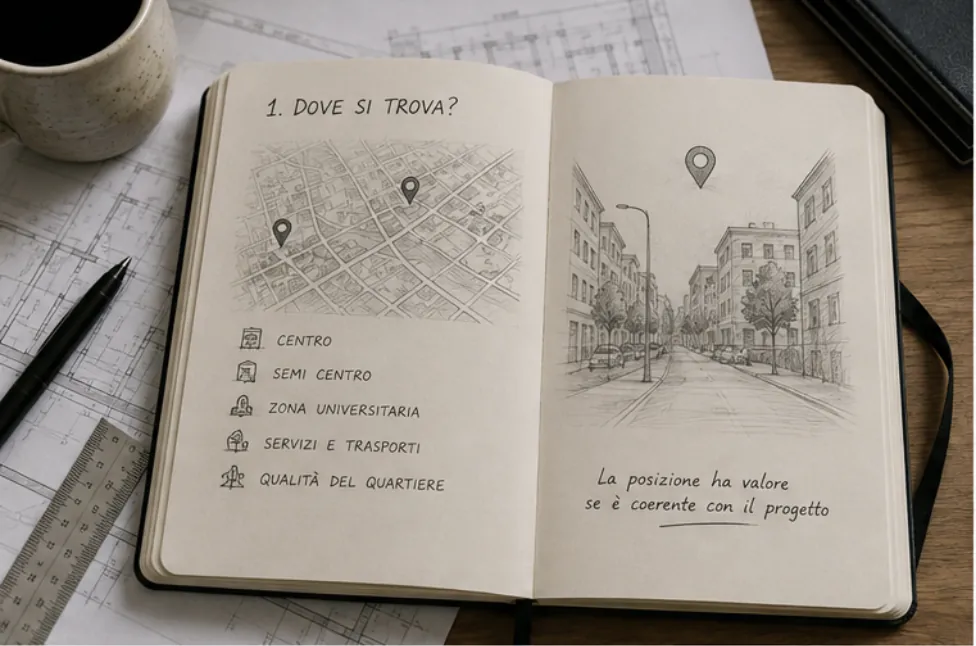 1. DOVE SI TROVA?
CENTRO
SEMI CENTRO
ZONA UNIVERSITARIA
SERVIZI E TRASPORTI
QUALITÀ DEL QUARTIERE
La posizione ha valore
se è coerente con il progetto